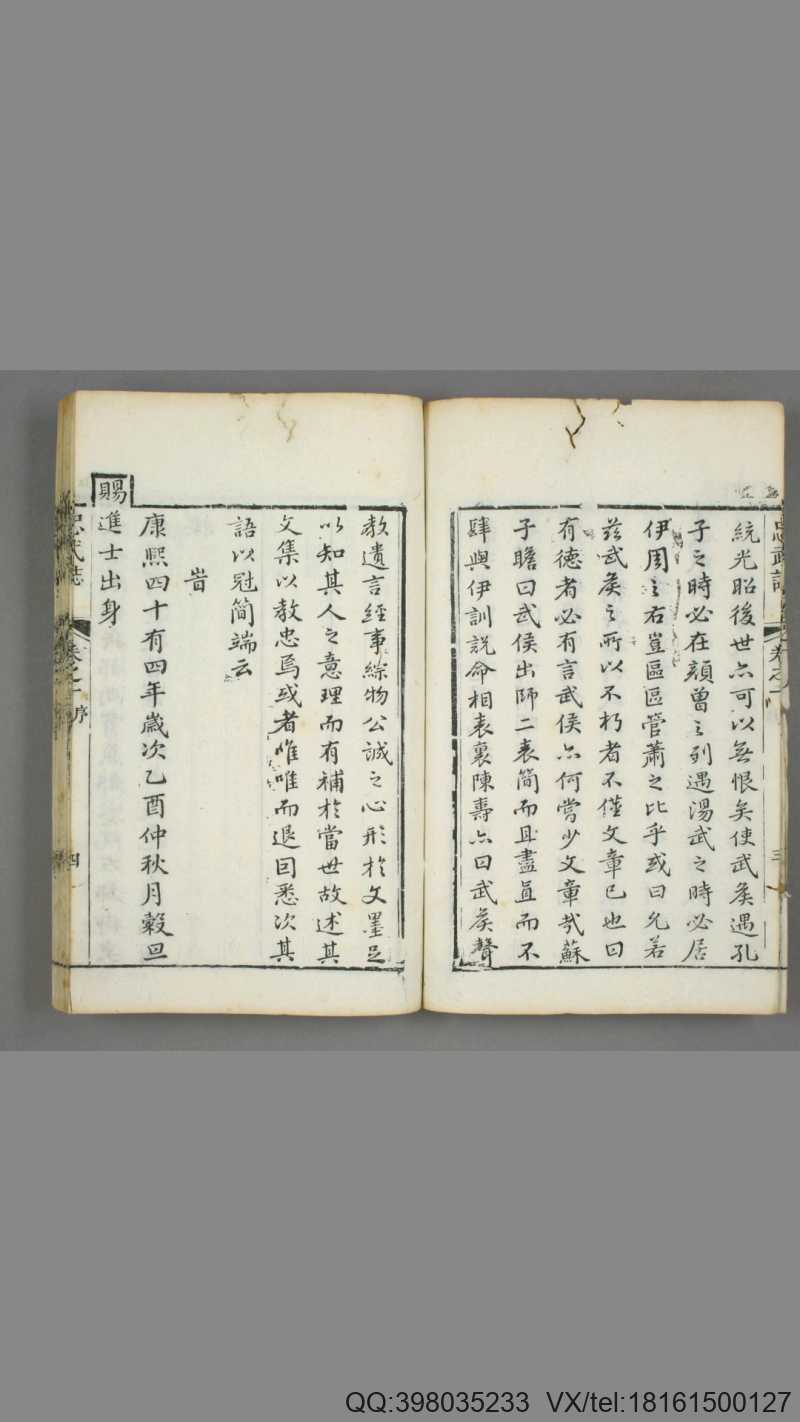 統光昭後世亦可以無恨矣使武矦遇孔
子之時必在顔曾之列遇湯武之時必居
伊周之右豈區區管蕭之比乎或曰允若
茲武矦之所以不朽者不僅文章已也曰
有德者必有言武侯亦何嘗少文章㢤蘇
子瞻曰武侯出師二表簡而且盡直而不
肆與伊訓説命相表裏陳壽亦曰武矦聲
教遺言經事綜物公誠之心形於文墨足
以知其人之意理而有補於當世故述其
文集以教忠焉或者唯唯而退囙悉次其
語以冠簡端云
旹
康熙四十有四年歲次乙酉仲秋月穀旦
賜進士出身
忠武誌
卷之一
序
四
忠武誌
卷之一
三
QQ:398035233 VX/tel:18161500127